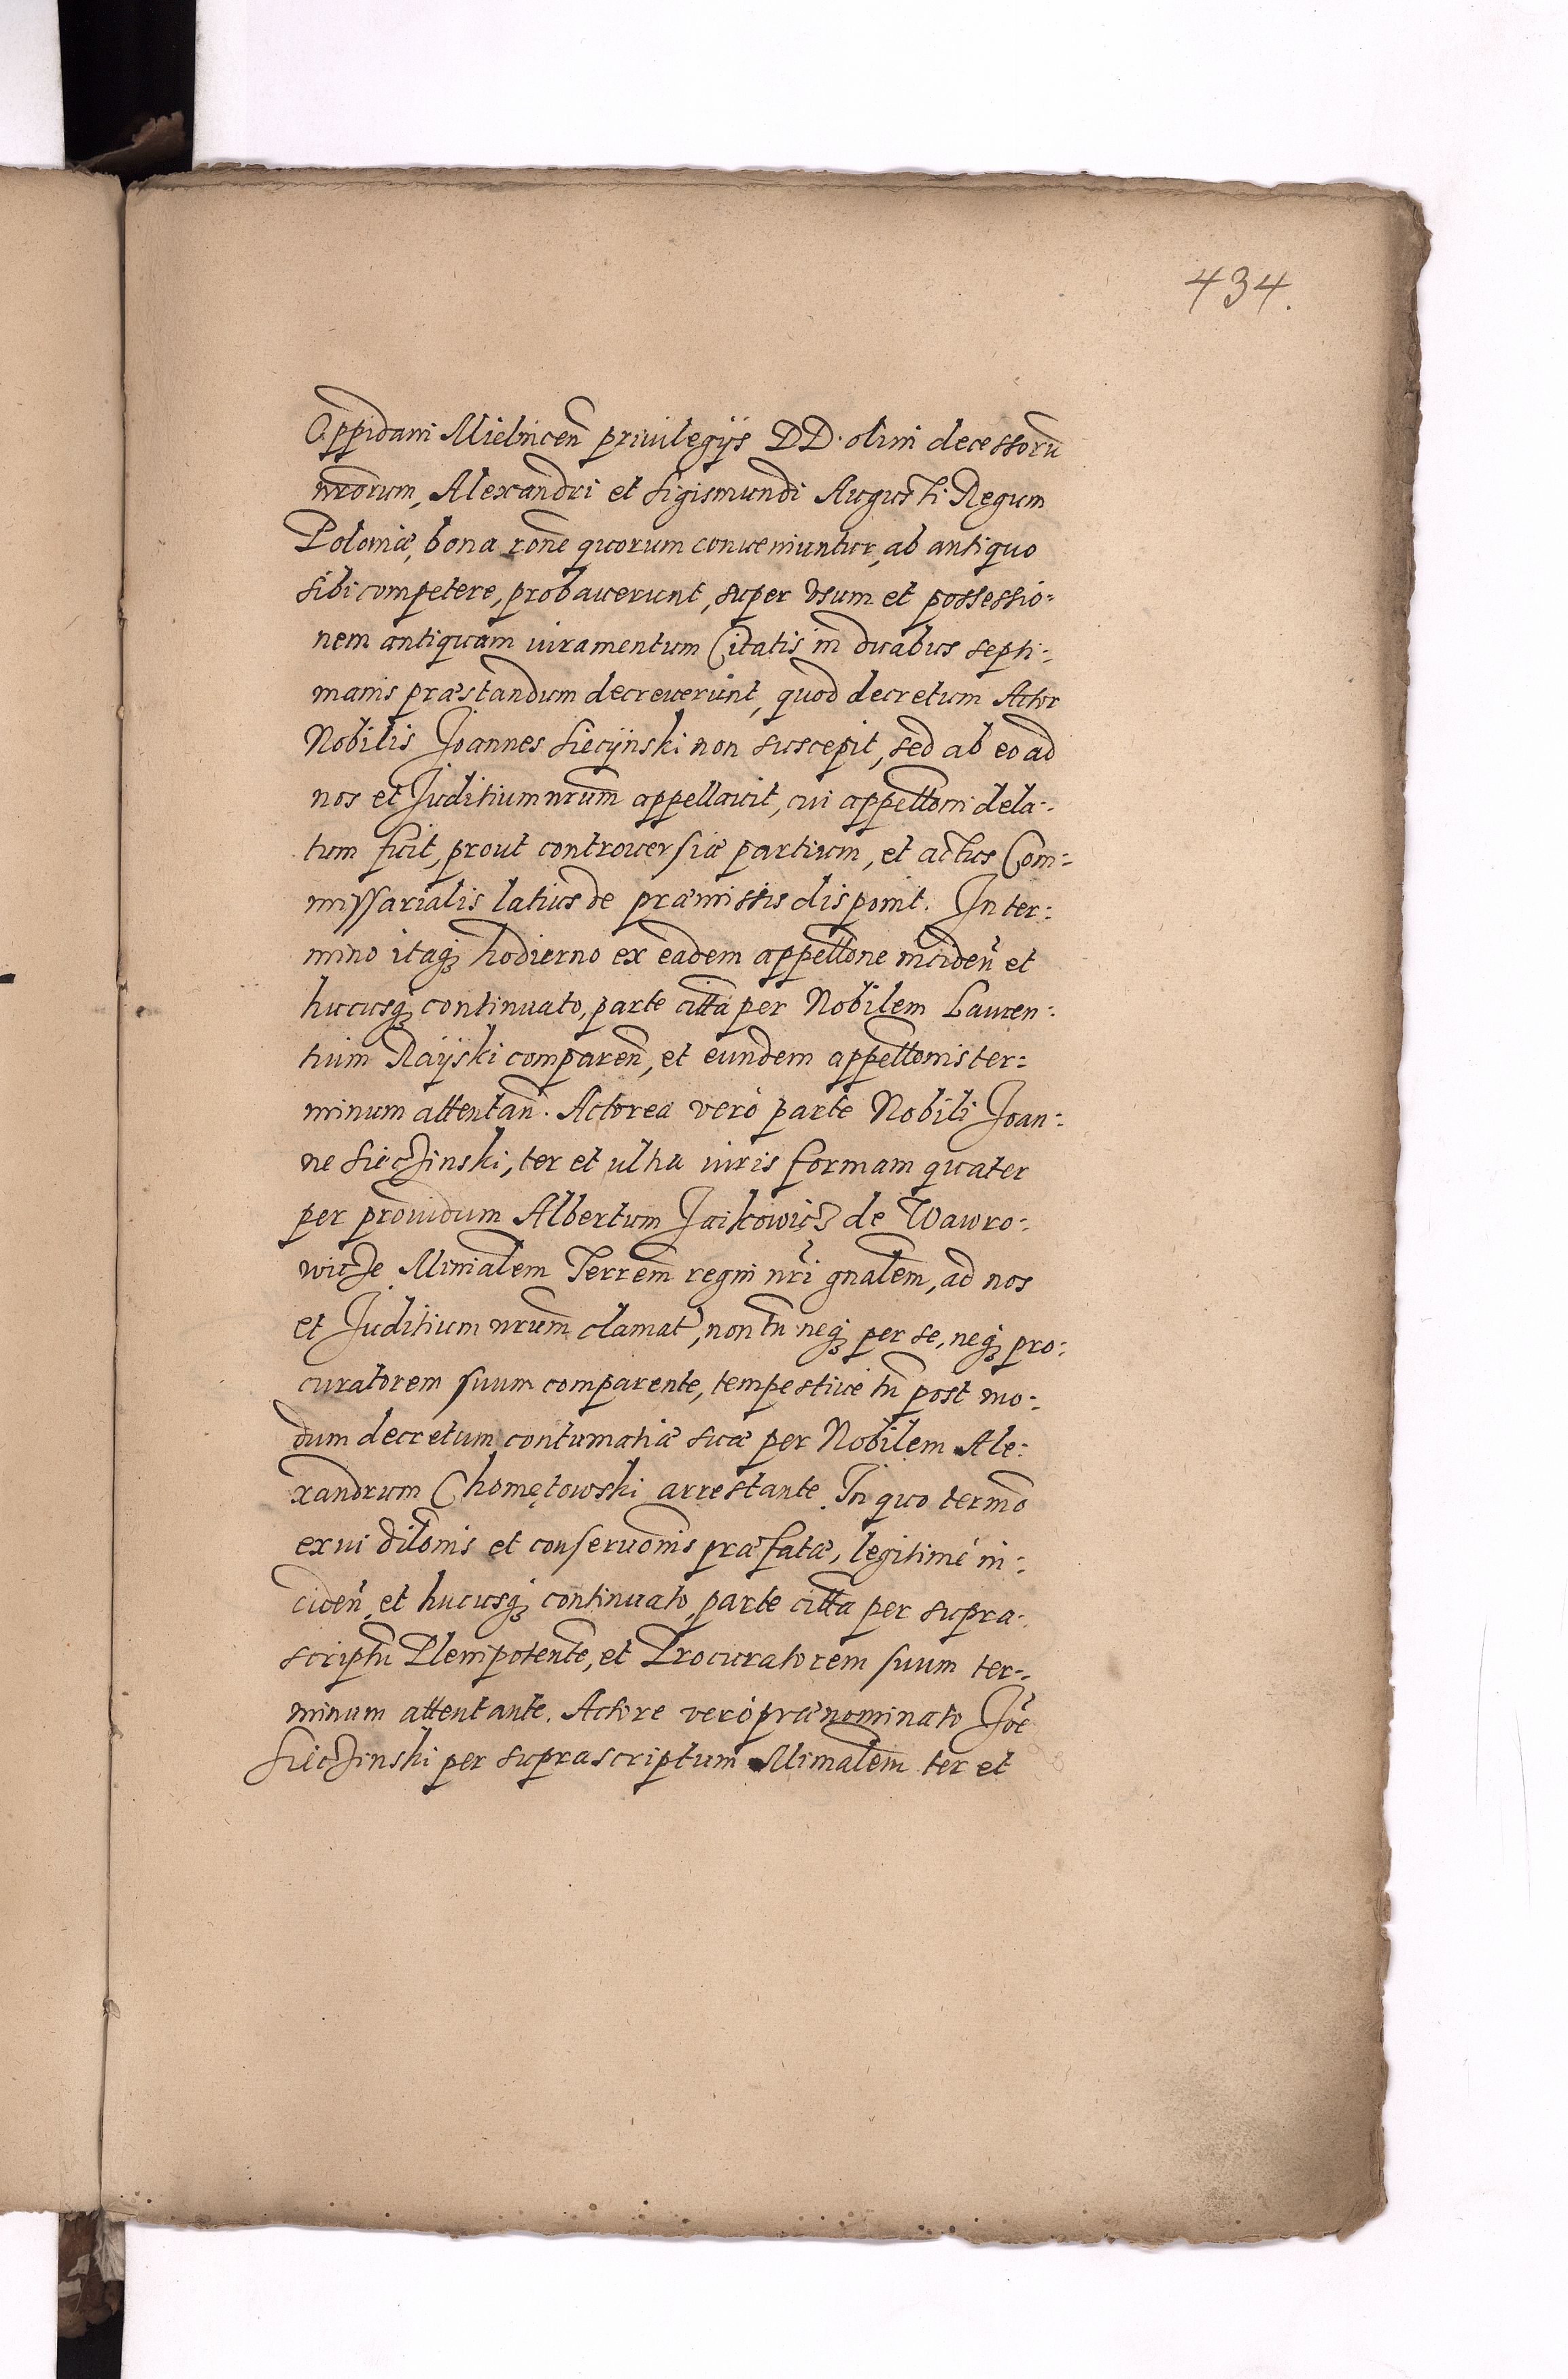 434.
Oppidani Mielnicen̄ privilegijs DD. olim decessorū
nrorum, Alexandri et Sigismundi Augusti Regum
Poloniæ, bona rōne quorum conveniuntur, ab antiquo
sibi competere, probaverunt, super usum et possessio:
nem antiquam iuramentum Citatis in duabus septi:
manis præstandum decreuerunt, quod decretum Actor
Nobilis Joannes Siecÿnski non suscepit, sed ab eo ad
nos et Juditium nrum appellavit, cui appellōni dela:
tum fuit, prout controuersiæ partium, et actus Com:
missarialis latius de præmissis disponit. In ter:
mino itaqꝫ hodierno ex eadem appellōne inciden̄ et
hucusqꝫ continuato, parte citta per Nobilem Lauren:
tium Raÿski comparen̄, et eundem appellōnis ter:
minum attentan̄. Actorea verò parte Nobili Joan:
ne Sieczinski, ter et ultra iuris formam quater
per providum Albertum Jaikowicz de Wawro:
wicze Mīnialem Terrem regni nri gnalem, ad nos
et Juditium nrum clamat, non tn̄ neqꝫ per se, neqꝫ pro:
curatorem suum comparente, tempestive tn̄ post mo:
dum decretum contumatiæ suæ per Nobilem Ale:
xandrum Chomętowski arrestante. In quo termō
ex vi dilōnis et conservōnis præfatæ, legitimè in:
ciden̄, et hucusqꝫ continuato, parte citta per supra:
scriptū Plenipotente, et Procuratorem suum ter:
minum attentante. Actore verò prænominato Joē
Sieczinski per suprascriptum Mīnialem ter et